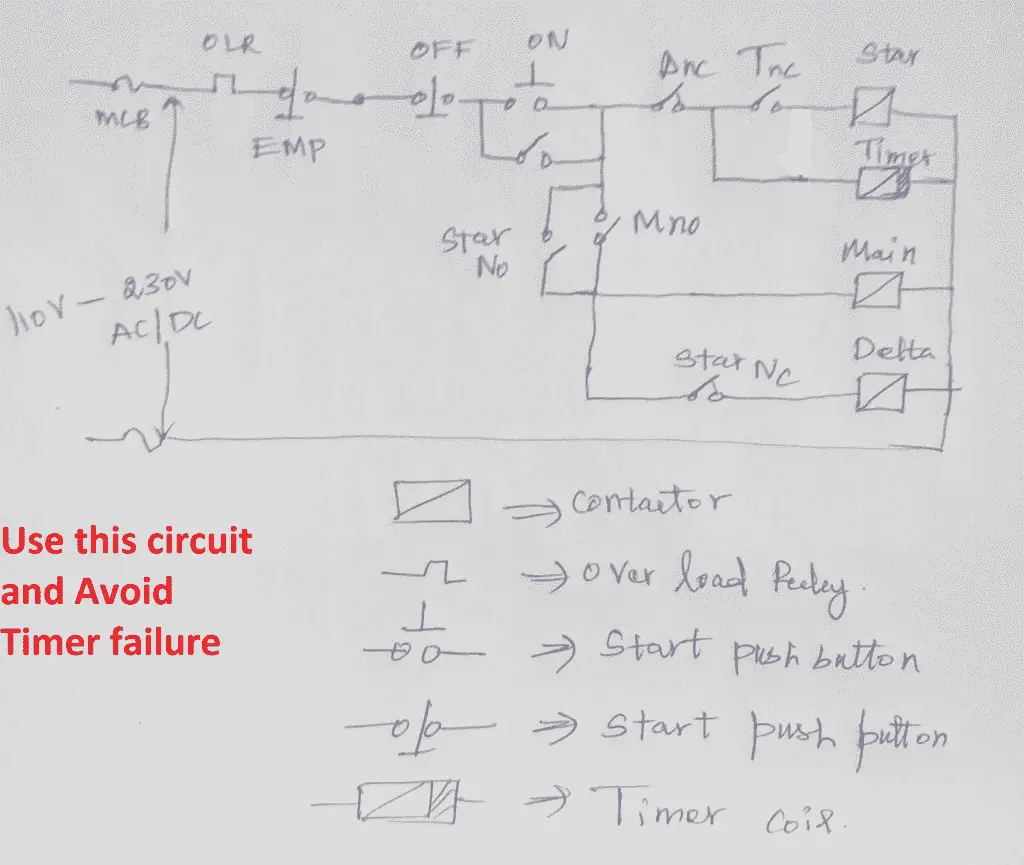 OLR
OFF
ON
Δnc
Tnc
Star
MCB
EMP
Timer
Star
No
Mno
Main
110V - 230V
AC/DC
Star NC
Delta
Contactor
Over load Relay.
Use this circuit
and Avoid
Timer failure
Start push button
Start push button
Timer Coil.